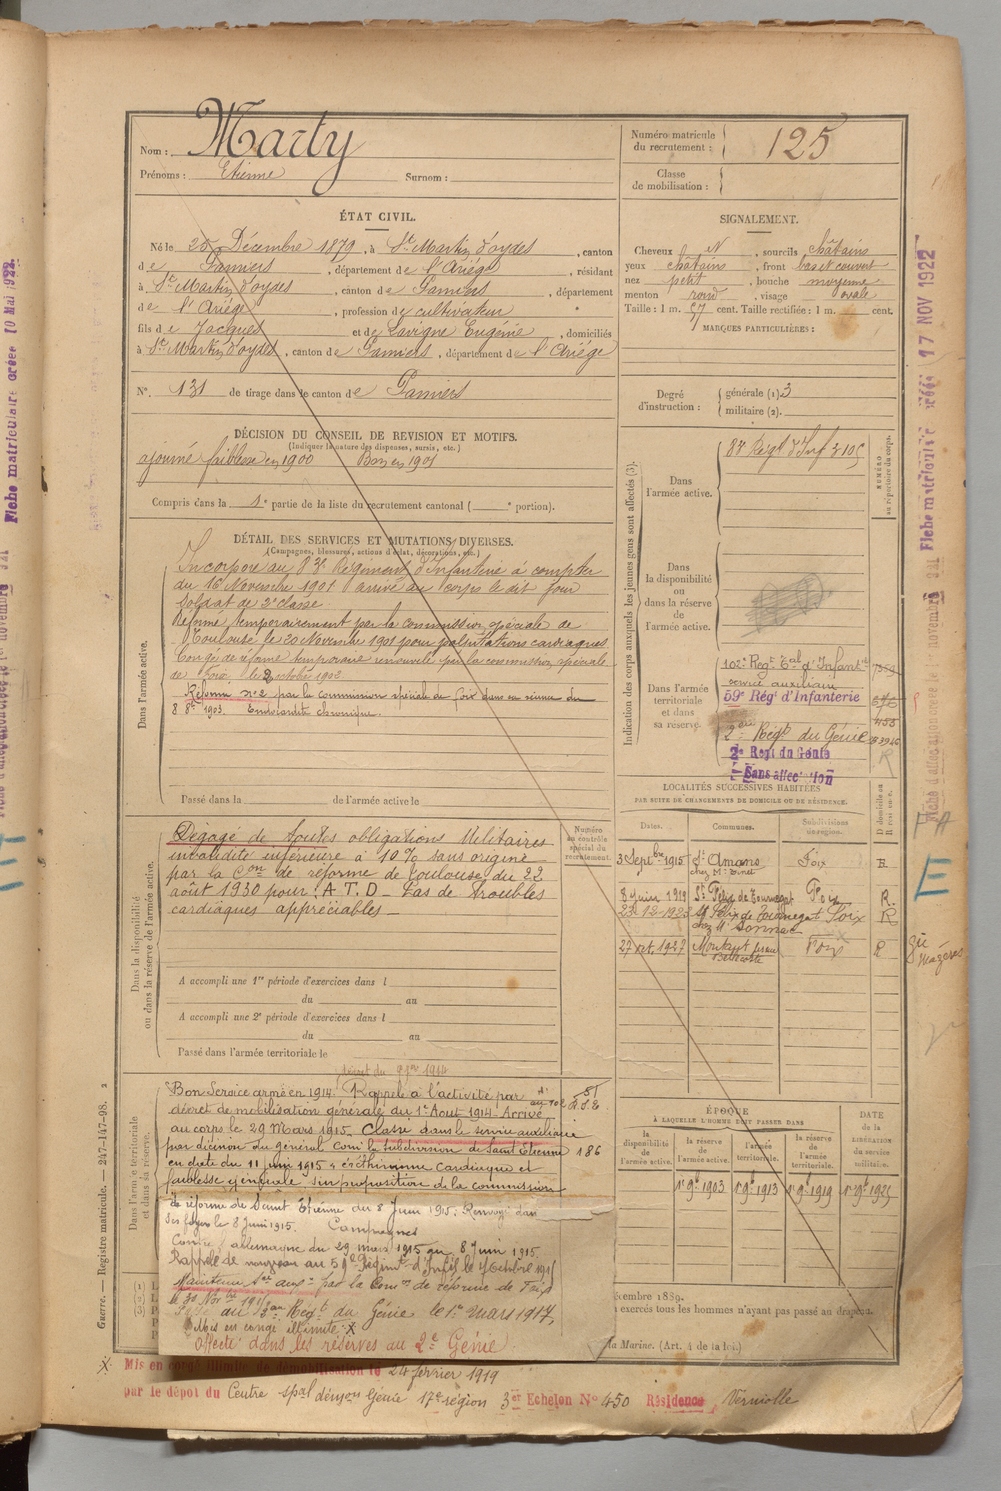 Nom : Marty
Prénoms : Etienne Surnom :
Numéro matricule du recrutement : 125
Classe de mobilisation :
ÉTAT CIVIL.
Né le 25 Décembre 1879, à St Martin d'oydes, canton
de Pamiers, département de l'Ariége, résidant
à St Martin d'oydes, canton de Pamiers, département
de l'Ariége, profession de cultivateur
fils de Jacques et de Lavigne Eugénie, domiciliés
à St Martin d'oydes, canton de Pamiers, département de l'Ariége
N°. 131 de tirage dans le canton de Pamiers
SIGNALEMENT.
Cheveux N, sourcils châtains
yeux châtains, front bas et couvert
nez petit, bouche moyenne
menton rond, visage ovale
Taille : 1 m. 57 cent. Taille rectifiée : 1 m. cent.
MARQUES PARTICULIÈRES :
Degré d'instruction : générale (1) 3
militaire (2).
DÉCISION DU CONSEIL DE REVISION ET MOTIFS.
(Indiquer la nature des dispenses, sursis, etc.)
ajourné faiblesse en 1900 Bon en 1901
Compris dans la 1e partie de la liste du recrutement cantonal ( e portion).
DÉTAIL DES SERVICES ET MUTATIONS DIVERSES.
(Campagnes, blessures, actions d'éclat, décorations, etc.)
Dans l'armée active.
Incorporé au 83e Régiment d'Infanterie à compter
du 16 Novembre 1901 arrivé au corps le dit jour
soldat de 2e classe
Réformé temporairement par la commission spéciale de
Toulouse le 20 Novembre 1901 pour palpitations cardiaques.
Congé de réforme temporaire renouvelé par la commission spéciale
de Foix, le 2 octobre 1902
Réformé n° 2 par la Commission spéciale de Foix dans sa séance du
8 8bre 1903. Endocardite chronique.
Passé dans la de l'armée active le
Indication des corps auxquels les jeunes gens sont affectés (3).
NUMÉRO au répertoire du corps.
Dans l'armée active.
83e Régt d'Inf 2105
Dans la disponibilité ou dans la réserve de l'armée active.
Dans l'armée territoriale et dans sa réserve.
102e Regt Tal d'Infant
service auxiliaire
59e Régt d'Infanterie
2e Regt du Génie
2e Regt du Génie
Sans affectation
LOCALITÉS SUCCESSIVES HABITÉES
PAR SUITE DE CHANGEMENTS DE DOMICILE OU DE RÉSIDENCE.
Dates. Communes. Subdivisions de région. D domicile ou R résidence.
3 Septbre 1915 St Amans Foix
8 juin 1919 St Félix de Tournegat Foix R.
St Félix de Tournegat Foix R
27 oct. 1927 Foix R
Dans la disponibilité ou dans la réserve de l'armée active.
Numéro au contrôle spécial du recrutement.
Dégagé de toutes obligations Militaires
invalidité inférieure à 10% sans origine
par la Con de réforme de Toulouse du 22
août 1930 pour : A.T.D - Pas de troubles
cardiaques appréciables -
A accompli une 1re période d'exercices dans l
du au
A accompli une 2e période d'exercices dans l
du au
Passé dans l'armée territoriale le
Dans l'armée territoriale et dans sa réserve.
Bon Service armé en 1914. Rappelé à l'activité par
décret de mobilisation générale du 1er Août 1914. Arrivé
au corps le 29 Mars 1915. Classé dans le service auxiliaire
par décision du général Comt la Subdivision de Saint Etienne 186
en date du 11 juin 1915 « éréthisme cardiaque et
faiblesse générale » sur proposition de la commission
de réforme de Saint Etienne du 8 Juin 1915. Renvoyé dans
ses foyers le 8 Juin 1915. Campagnes
Contre l'allemagne du 29 mars 1915 au 8 juin 1915.
Rappelé de nouveau au 59e Régiment d'Inf le 4 Octobre 1915
Maintenu Sce auxre par la Comon de réforme de Foix
au 2e Regt du Génie le 1er mars 1917,
Mis en congé illimité X
Affecté dans les réserves au 2e Génie
X. Mis en congé illimité de démobilisation le 24 février 1919
par le dépôt du Centre spal démon Génie 17e région 3er Echelon N° 450 Résidence Verniolle
ÉPOQUE À LAQUELLE L'HOMME DOIT PASSER DANS
la disponibilité de l'armée active. la réserve de l'armée active. l'armée territoriale. la réserve de l'armée territoriale.
DATE DE LA LIBÉRATION du service militaire.
1r 9e 1903 1r 9e 1913 1r 9e 1919 1r 9e 1925
écembre 1889.
exercés tous les hommes n'ayant pas passé au drapeau.
la Marine. (Art. 4 de la loi.)
Guerre. — Registre matricule. — 247-147-98.
Fiche matriculaire créée 10 Mai 1922.
17 NOV 1922